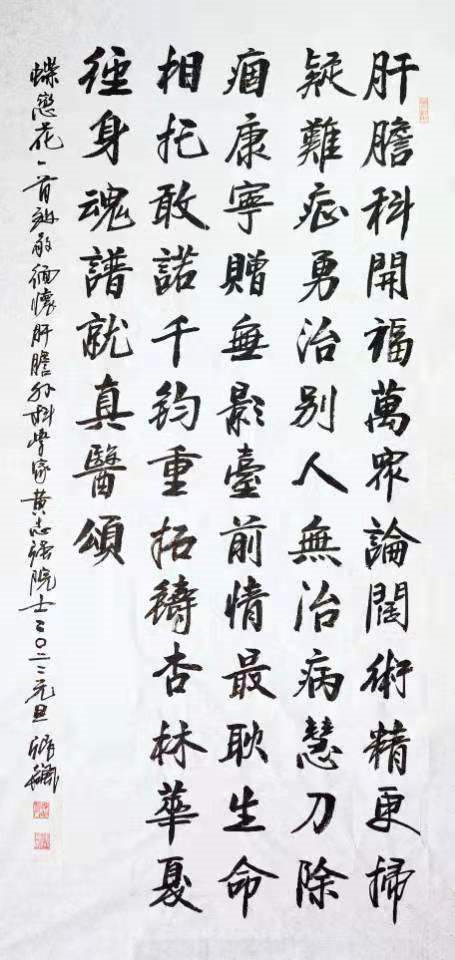 肝膽科開福萬眾論闊術精更掃
疑難症勇治別人無治病慧刀除
痼康寧贈無影臺前情最耿生命
相托敢諾千鈞重拓鑄杏林華夏
徑身魂譜就真醫頌
蝶戀花一首致敬緬懷肝膽外科學家黃志強院士二〇二二元旦